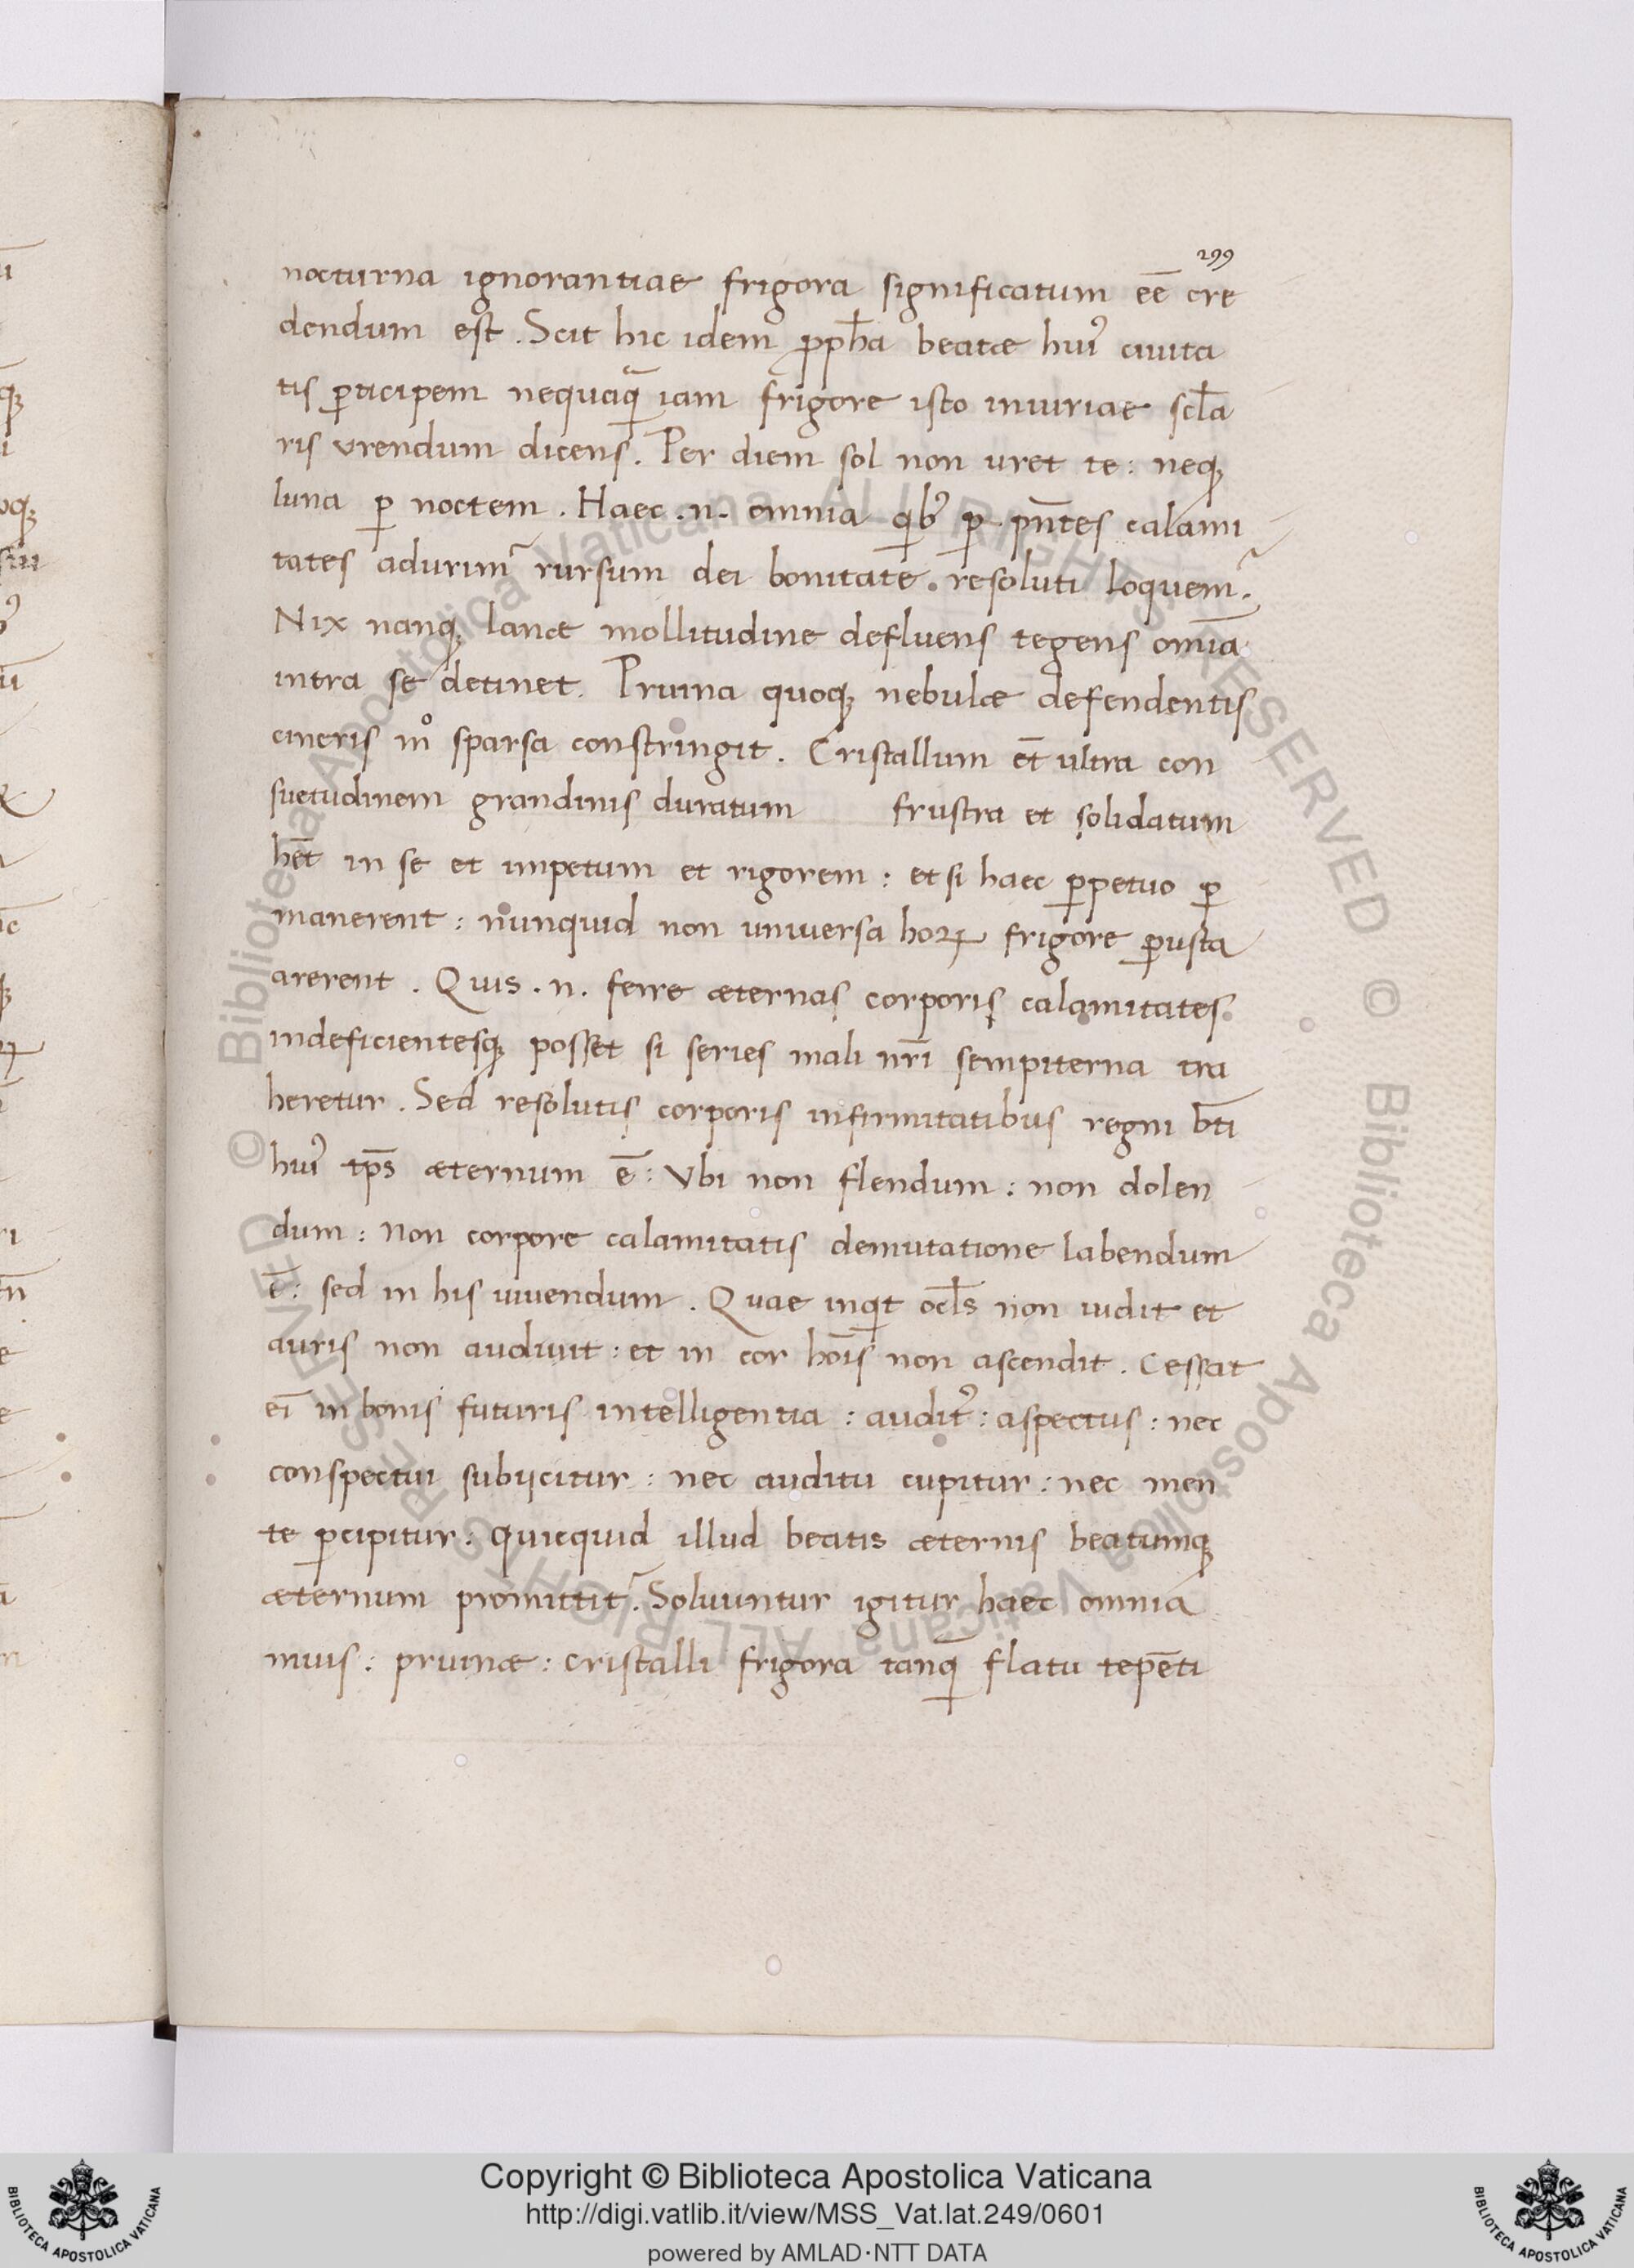 299
nocturna ignorantiae frigora significatum eē cre
dendum est. Scit hic idem ꝓph̄a beatæ huiꝰ ciuita
tis ꝑticipem nequaq̃ iam frigore isto iniuriae scl̄a
ris vrendum dicens. Per diem sol non uret te: neqꝫ
luna ꝑ noctem. Haec .n. omnia qibꝰ ꝑ pn̄tes calami
tates adurim̃ rursum dei bonitate. resoluti loquem̃.
Nix nanqꝫ lanæ mollitudine defluens tegens om̄ia
intra se detinet. Pruina quoqꝫ nebulæ defendentis
cineris mͦ sparsa constringit. Cristallum et̄ ultra con
suetudinem grandinis duratum frustra et solidatum
het̄ in se et impetum et rigorem: et si haec ꝑpetuo ꝑ
manerent: nunquid non universa hoꝝ frigore ꝑusta
arerent. Quis .n. ferre æternas corporis calamitates.
indeficientesqꝫ posset si series mali nr̄i sempiterna tra
heretur. Sed resolutis corporis infirmitatibus regni bt̄i
huiꝰ tp̄s æternum ē: Vbi non flendum: non dolen
dum: non corpore calamitatis demutatione labendum
ē: sed in his uiuendum. Quae inqt ocl̄s non uidit et
auris non audiuit: et in cor hōis non ascendit. Cessat
ei̅ in bonis futuris intelligentia: auditꝰ: aspectus: nec
conspectui subijcitur: nec auditu cupitur: nec men
te ꝑcipitur: quicquid illud beatis æternis beatumqꝫ
æternum promittit̃. Soluuntur igitur haec omnia
niuis: pruinæ: cristalli frigora tanq̃ flatu tepēti
© Biblioteca Apostolica Vaticana ALL RIGHTS RESERVED
© Biblioteca Apostolica Vaticana ALL RIGHTS RESERVED
Copyright © Biblioteca Apostolica Vaticana
http://digi.vatlib.it/view/MSS_Vat.lat.249/0601
powered by AMLAD·NTT DATA
BIBLIOTECA APOSTOLICA VATICANA
BIBLIOTECA APOSTOLICA VATICANA